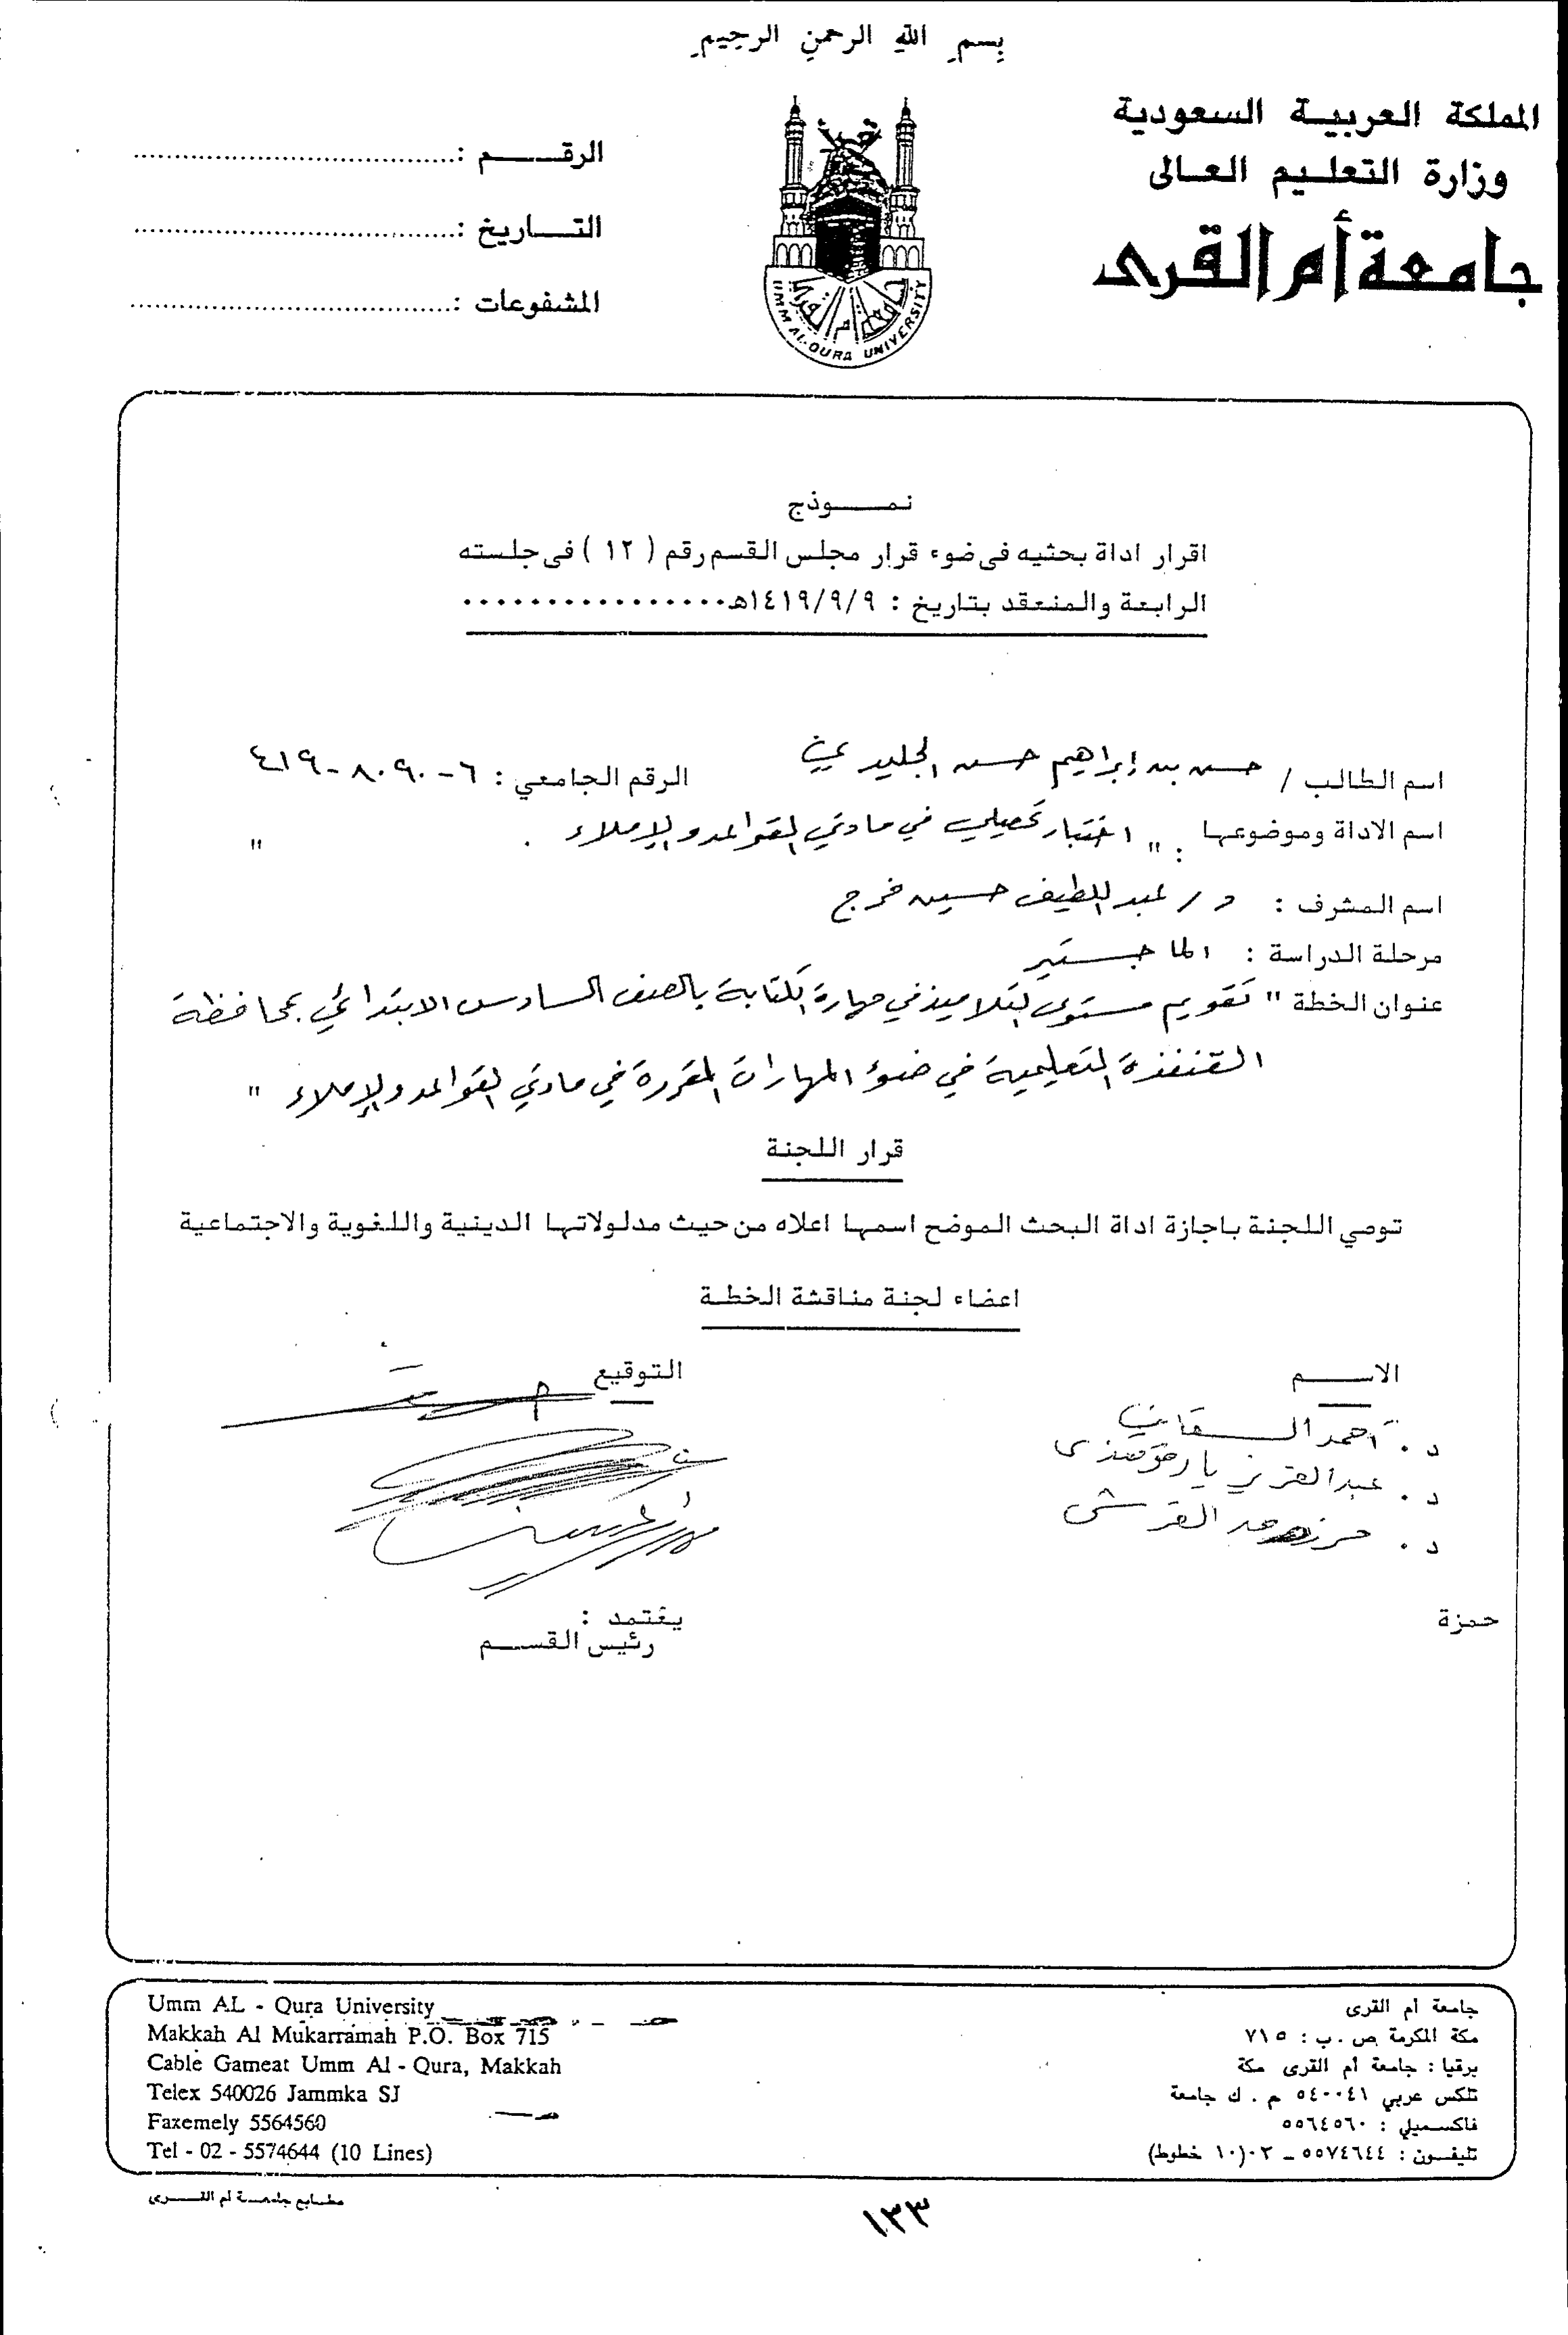 بِسمِ اللهِ الرحمنِ الرجيمِ
المملكة العربية السعودية
وزارة التعليم العالى
جامعة أم القرى
الرقم :
التاريخ :
المشفوعات :
UMM AL-QURA UNIVERSITY
نموذج
اقرار اداة بحثيه فى ضوء قرار مجلس القسم رقم ( ١٢ ) فى جلسته
الرابعة والمنعقد بتاريخ : ١٤١٩/٩/٩هـ.................
اسم الطالب / حسن بن إبراهيم حسن الجليدي الرقم الجامعي : ٦-٨٠٩٠-٤١٩
اسم الاداة وموضوعها : " اختبار تحصيلي في مادتي القواعد والإملاء . "
اسم المشرف : د / عبد اللطيف حسين فرج
مرحلة الدراسة : الماجستير
عنوان الخطة " تقويم مستوى التلاميذ في مهارة الكتابة بالصف السادس الابتدائي بمحافظة
القنفذة التعليمية في ضوء المهارات المقررة في مادتي القواعد والإملاء "
قرار اللجنة
توصي اللجنة باجازة اداة البحث الموضح اسمها اعلاه من حيث مدلولاتها الدينية واللغوية والاجتماعية
اعضاء لجنة مناقشة الخطة
الاسم التوقيع
د . أحمد
د . عبدالعزيز
د . القرشى
حمزة
يعتمد :
رئيس القسم
Umm AL - Qura University
Makkah Al Mukarramah P.O. Box 715
Cable Gameat Umm Al - Qura, Makkah
Telex 540026 Jammka SJ
Faxemely 5564560
Tel - 02 - 5574644 (10 Lines)
جامعة أم القرى
مكة المكرمة ص . ب : ٧١٥
برقيا : جامعة أم القرى مكة
تلكس عربي ٥٤٠٠٤١ م . ك جامعة
فاكسميلي : ٥٥٦٤٥٦٠
تليفون : ٥٥٧٤٦٤٤ - ٠٢ (١٠ خطوط)
مطابع جامعة أم القرى
١٣٣